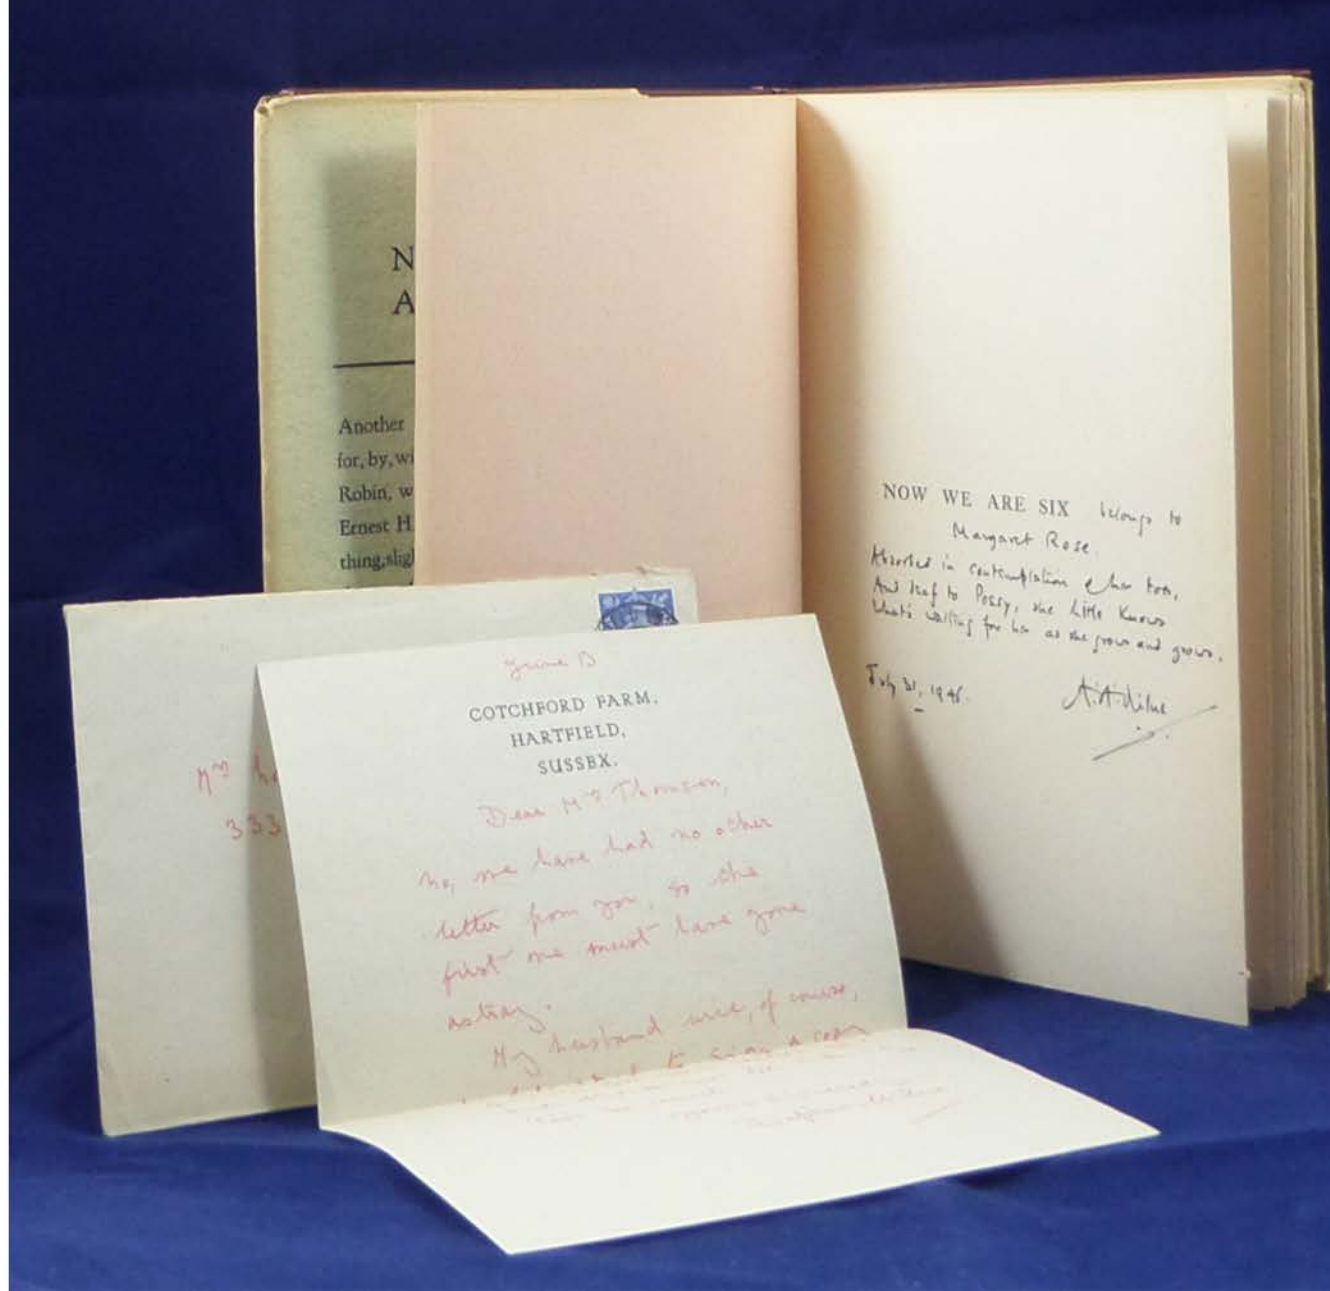 N
A
Another
for, by, wi
Robin, w
Ernest H
thing, slig
NOW WE ARE SIX belongs to
Margaret Rose.
Absorbed in contemplation of her toes,
And deaf to Possy, she little knows
What's waiting for her as she grows and grows.
July 31, 1946.
A.A. Milne
Mrs
333
June 13
COTCHFORD FARM,
HARTFIELD,
SUSSEX.
Dear Mrs Thomson,
No, we have had no other
letter from you, so the
first one must have gone
astray.
My husband will, of course,
to sign a copy